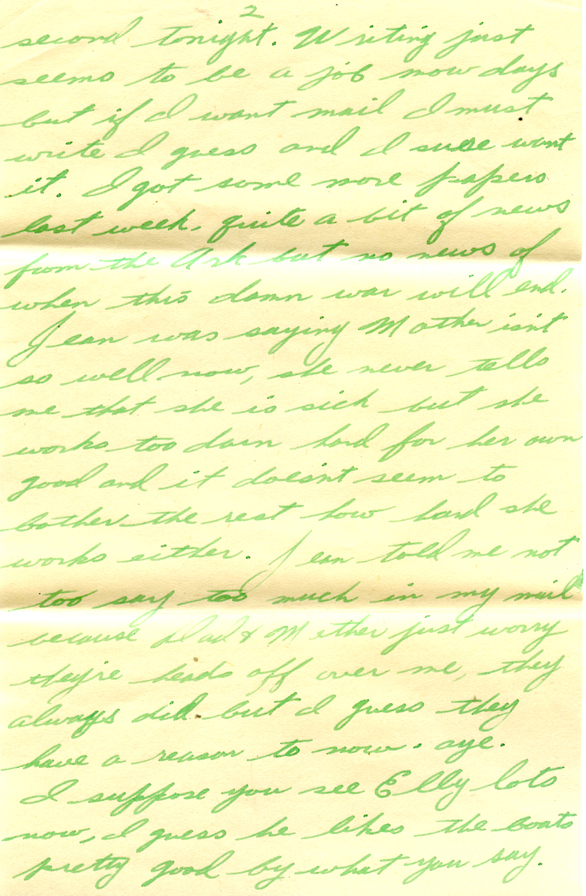 2
second tonight. Writing just
seems to be a job now days
but if I want mail I must
write I guess and I sure want
it. I got some more papers
last week, quite a bit of news
from the Ark but no news of
when this damn war will end.
Jean was saying Mother isn't
so well now, she never tells
me that she is sick but she
works too darn hard for her own
good and it doesn't seem to
bother the rest how hard she
works either. Jean told me not
too say too much in my mail
because Dad & Mother just worry
they're heads off over me, they
always did. but I guess they
have a reason to now. aye.
I suppose you see Elly lots
now, I guess he likes the boats
pretty good by what you say.